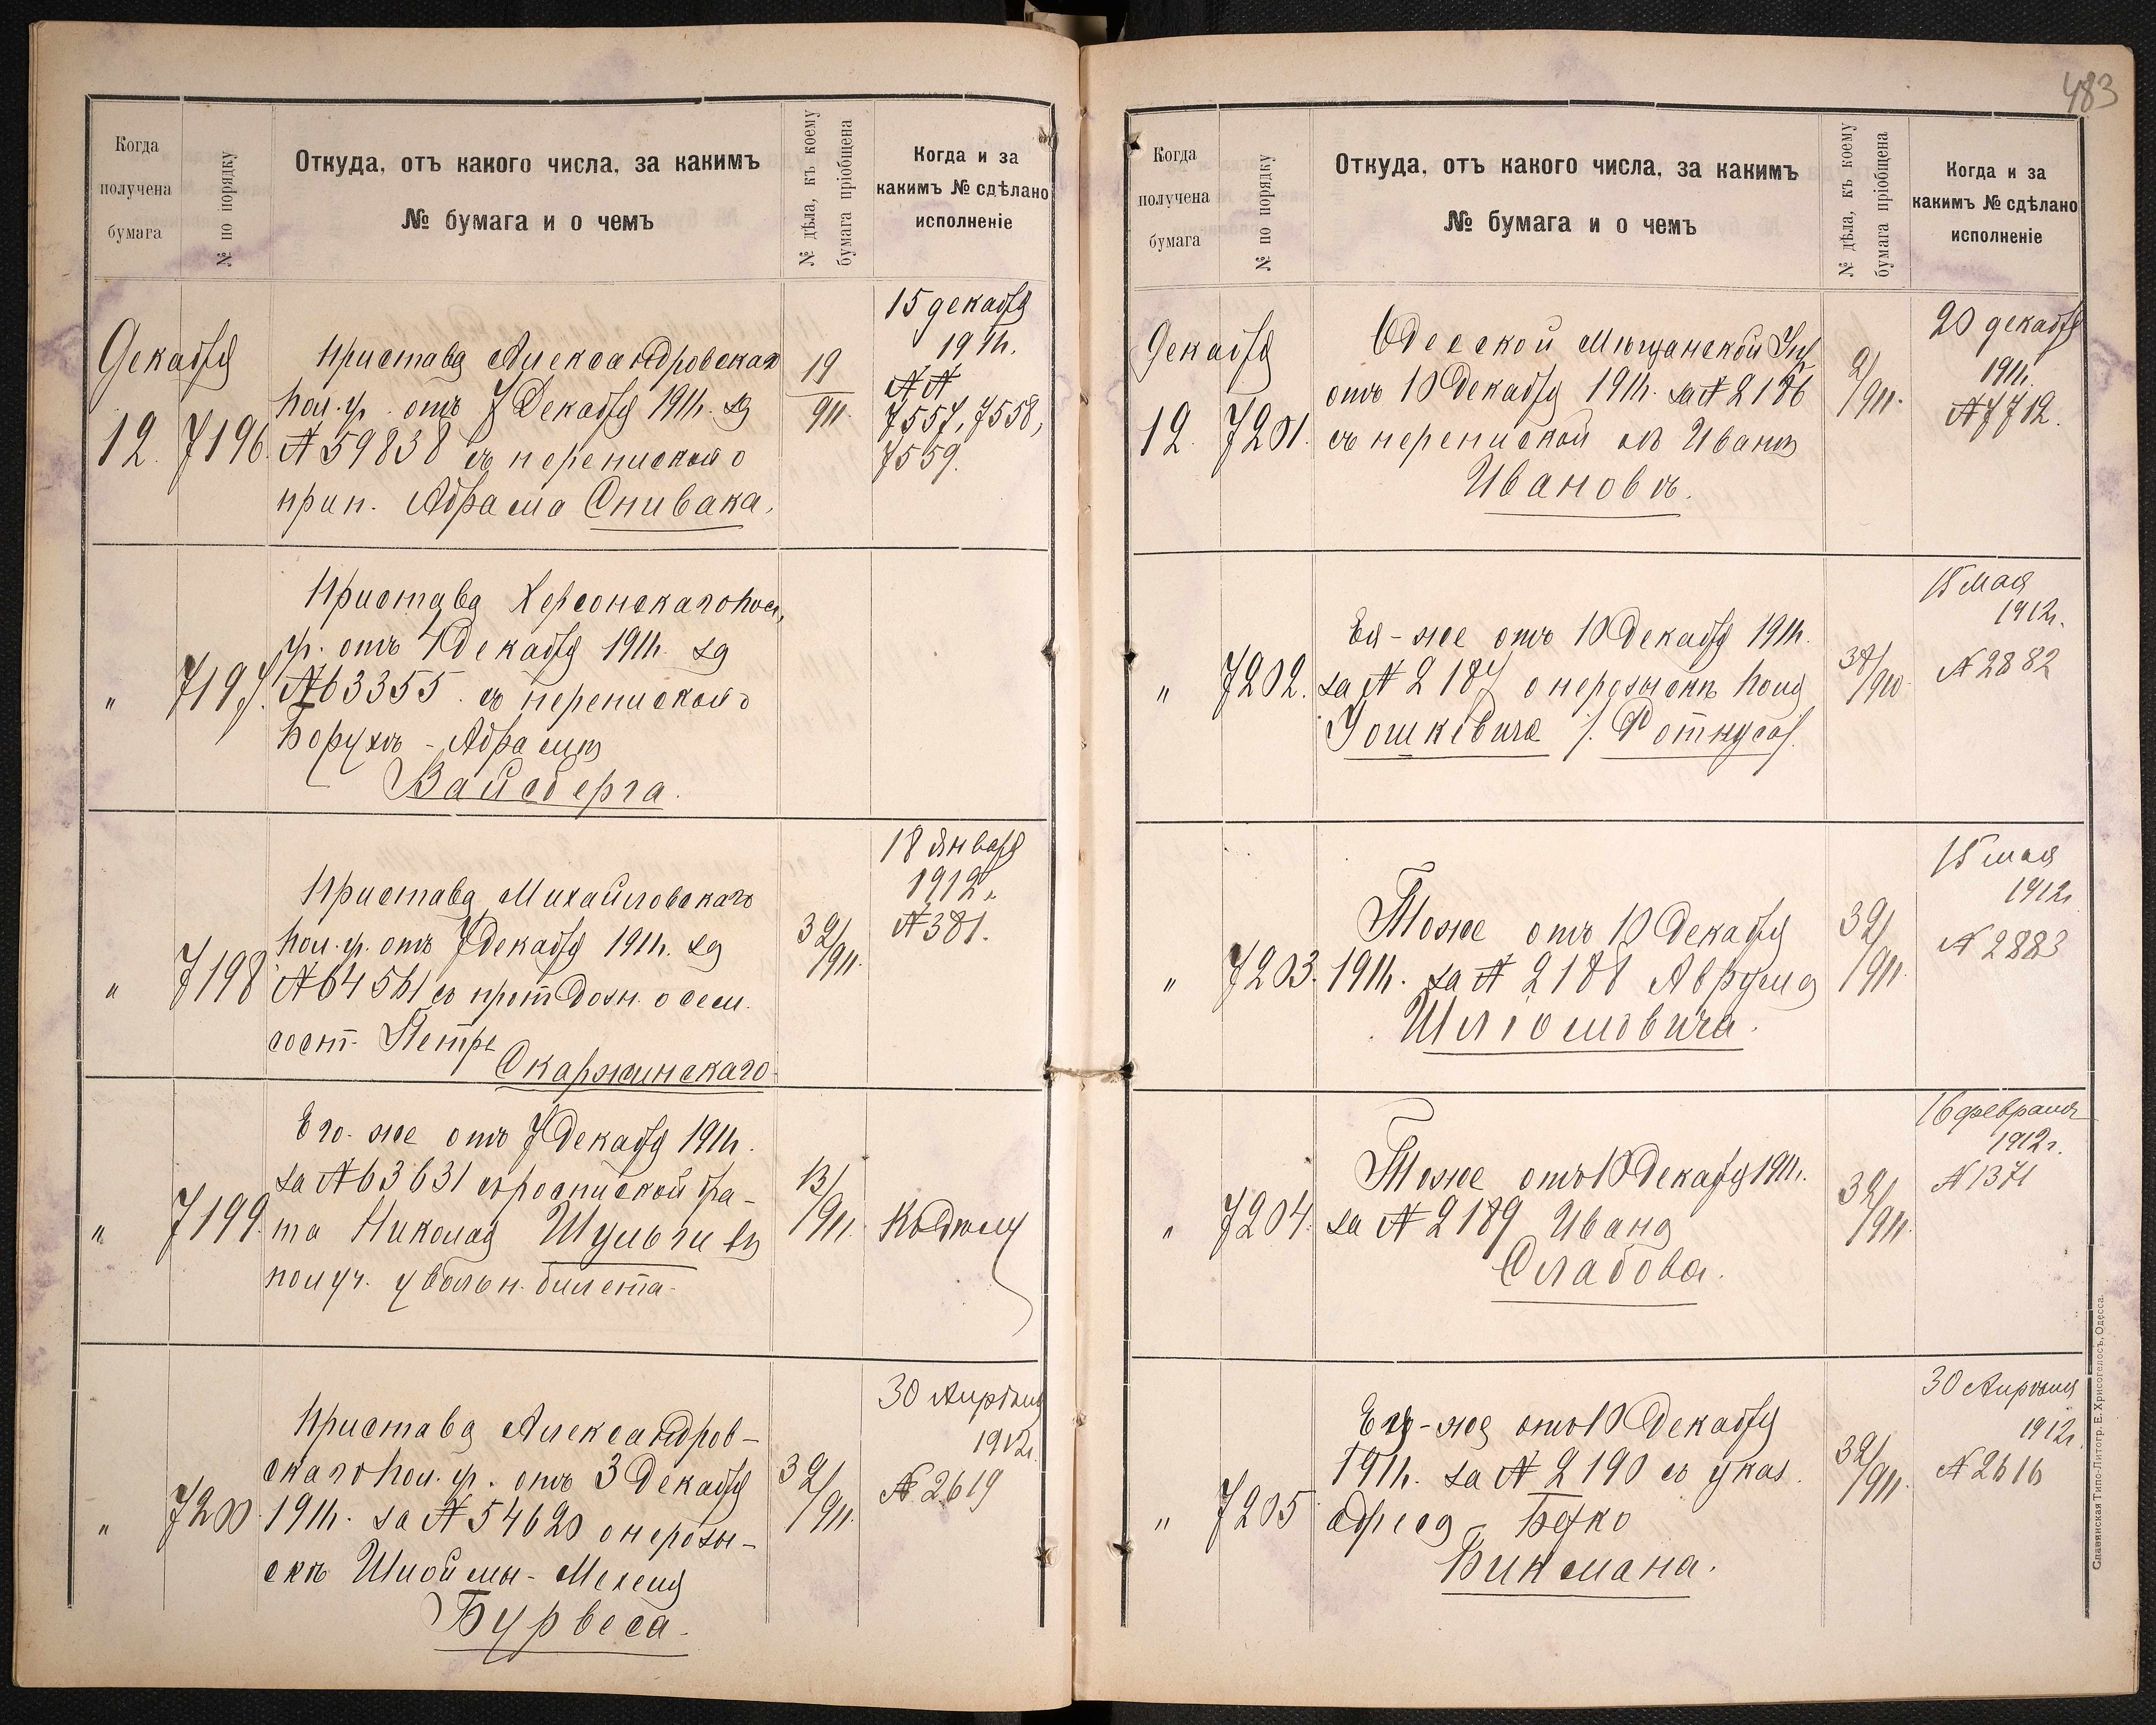 483
Когда
получена
бумага
№ по порядку
Откуда, отъ какого числа, за какимъ
№ бумага и о чемъ
№ дѣла, къ коему
бумага пріобщена
Когда и за
какимъ № сдѣлано
исполненіе
Декабря
12.
7196.
Пристава Александровскаго
пол. уч. отъ 7 Декабря 1911г. за
№ 59838 съ перепиской о
прин. Абрама Спивака.
19
911.
15 декабря
1911г.
№№
7557, 7558,
7559.
"
7197.
Пристава Херсонскаго пол.
уч. отъ 7 Декабря 1911г. за
№ 63355 съ перепиской о
Борухъ-Абрамѣ
Вайсберга.
"
7198
Пристава Михайловскаго
пол. уч. отъ 7 Декабря 1911г. за
№ 64561 съ прот дозн. о сем.
сост. Петра
Скаржинскаго.
32/911.
18 Января
1912г.
№ 381.
"
7199.
Его-же отъ 7 Декабря 1911г.
за № 63631 съ роспиской бра-
та Николая Шульги въ
получ. увольн. билета.
13/911.
Къ дѣлу
"
7200.
Пристава Александров-
скаго пол. уч. отъ 3 Декабря
1911г. за № 54620 о нерозы-
скѣ Шлоймы-Мехеля
Бурвеса.
32/911.
30 Апрѣля
1912г.
№ 2619
Когда
получена
бумага
№ по порядку
Откуда, отъ какого числа, за какимъ
№ бумага и о чемъ
№ дѣла, къ коему
бумага пріобщена
Когда и за
какимъ № сдѣлано
исполненіе
Декабря
12.
7201.
Одесской Мѣщанской Упр.
отъ 10 Декабря 1911г. за № 2186
съ перепиской объ Иванѣ
Ивановѣ.
2/911.
20 декабря
1911г.
№ 7712.
"
7202.
Ея-же отъ 10 Декабря 1911г.
за № 2187 о нерозыскѣ
32/910
15 мая
1912г.
№ 2882
"
7203.
Тоже отъ 10 Декабря
1911г. за № 2188 Аврума
Шлiомовича.
32/911.
15 мая
1912г.
№ 2883
"
7204.
Тоже отъ 10 Декабря 1911г.
за № 2189 Ивана
Слабова.
32/911.
16 февраля
1912г.
№ 1371
"
7205
Ея-же отъ 10 Декабря
1911г. за № 2190 съ указ.
адреса
Бикмана.
32/911.
30 Апрѣля
1912г.
№ 2616
Славянская Типо-Литогр. Е. Хрисогелосъ, Одесса.